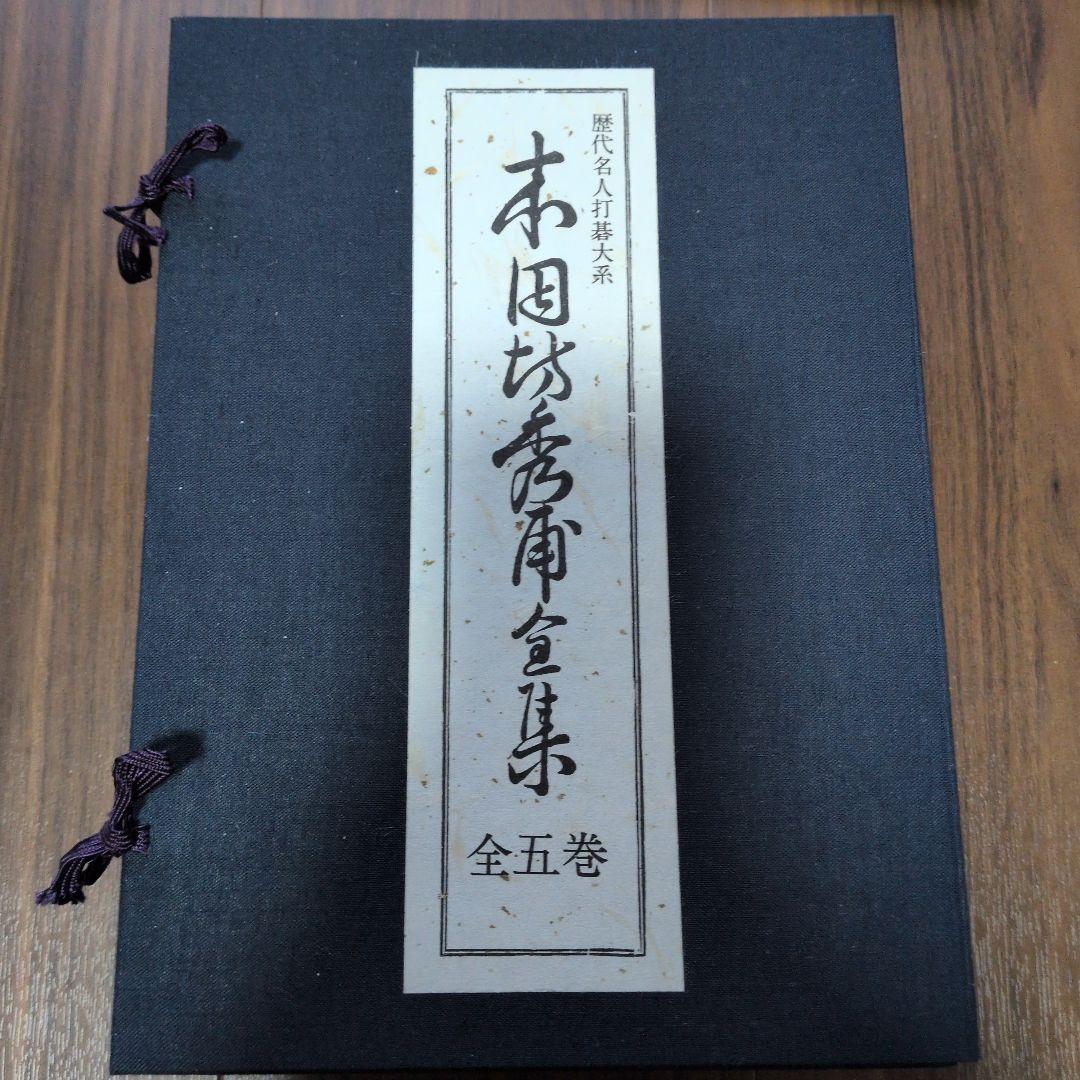 歴代名人打碁大系
本因坊秀甫全集
全五巻